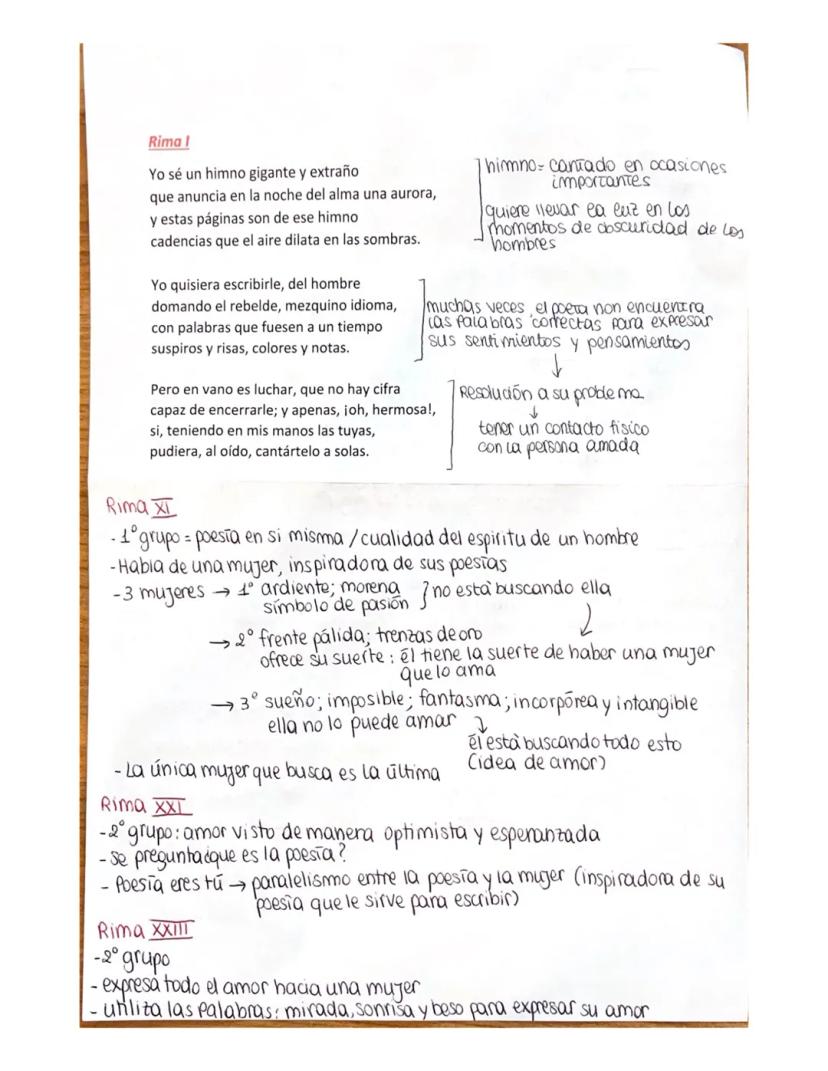 Rima I
Yo sé un himno gigante y extraño
que anuncia en la noche del alma una aurora,
y estas páginas son de ese himno
cadencias que el aire dilata en las sombras.
himno= cantado en ocasiones
importantes
quiere llevar la luz en los
momentos de obscuridad de los
hombres
Yo quisiera escribirle, del hombre
domando el rebelde, mezquino idioma,
con palabras que fuesen a un tiempo
suspiros y risas, colores y notas.
muchas veces el poeta non encuentra
las palabras correctas para expresar
sus sentimientos y pensamientos
↓
Pero en vano es luchar, que no hay cifra
capaz de encerrarle; y apenas, ¡oh, hermosa!,
si, teniendo en mis manos las tuyas,
pudiera, al oído, cantártelo a solas.
Resolución a su problema
↓
tener un contacto fisico
con la persona amada
Rima XI
- 1º grupo = poesía en si misma / cualidad del espiritu de un hombre
- Habla de una mujer, inspiradora de sus poesías
- 3 mujeres → 1º ardiente; morena
símbolo de pasión } no está buscando ella
→ 2º frente pálida; trenzas de oro
ofrece su suerte : él tiene la suerte de haber una mujer
que lo ama
→ 3º sueño; imposible; fantasma; incorpórea y intangible
ella no lo puede amar ↓
él està buscando todo esto
(idea de amor)
- La única mujer que busca es la última
Rima XXI
- 2º grupo: amor visto de manera optimista y esperanzada
- se pregunta ¿que es la poesía?
- Poesía eres tú → paralelismo entre la poesía y la mujer (inspiradora de su
poesia que le sirve para escribir)
Rima XXIII
- 2º grupo
- expresa todo el amor hacia una mujer
- utiliza las palabras: mirada, sonrisa y beso para expresar su amor